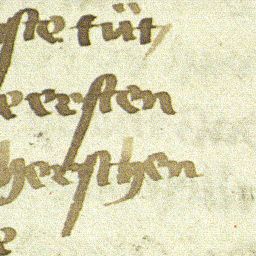 ste tüt
e ersten
hersthen
e